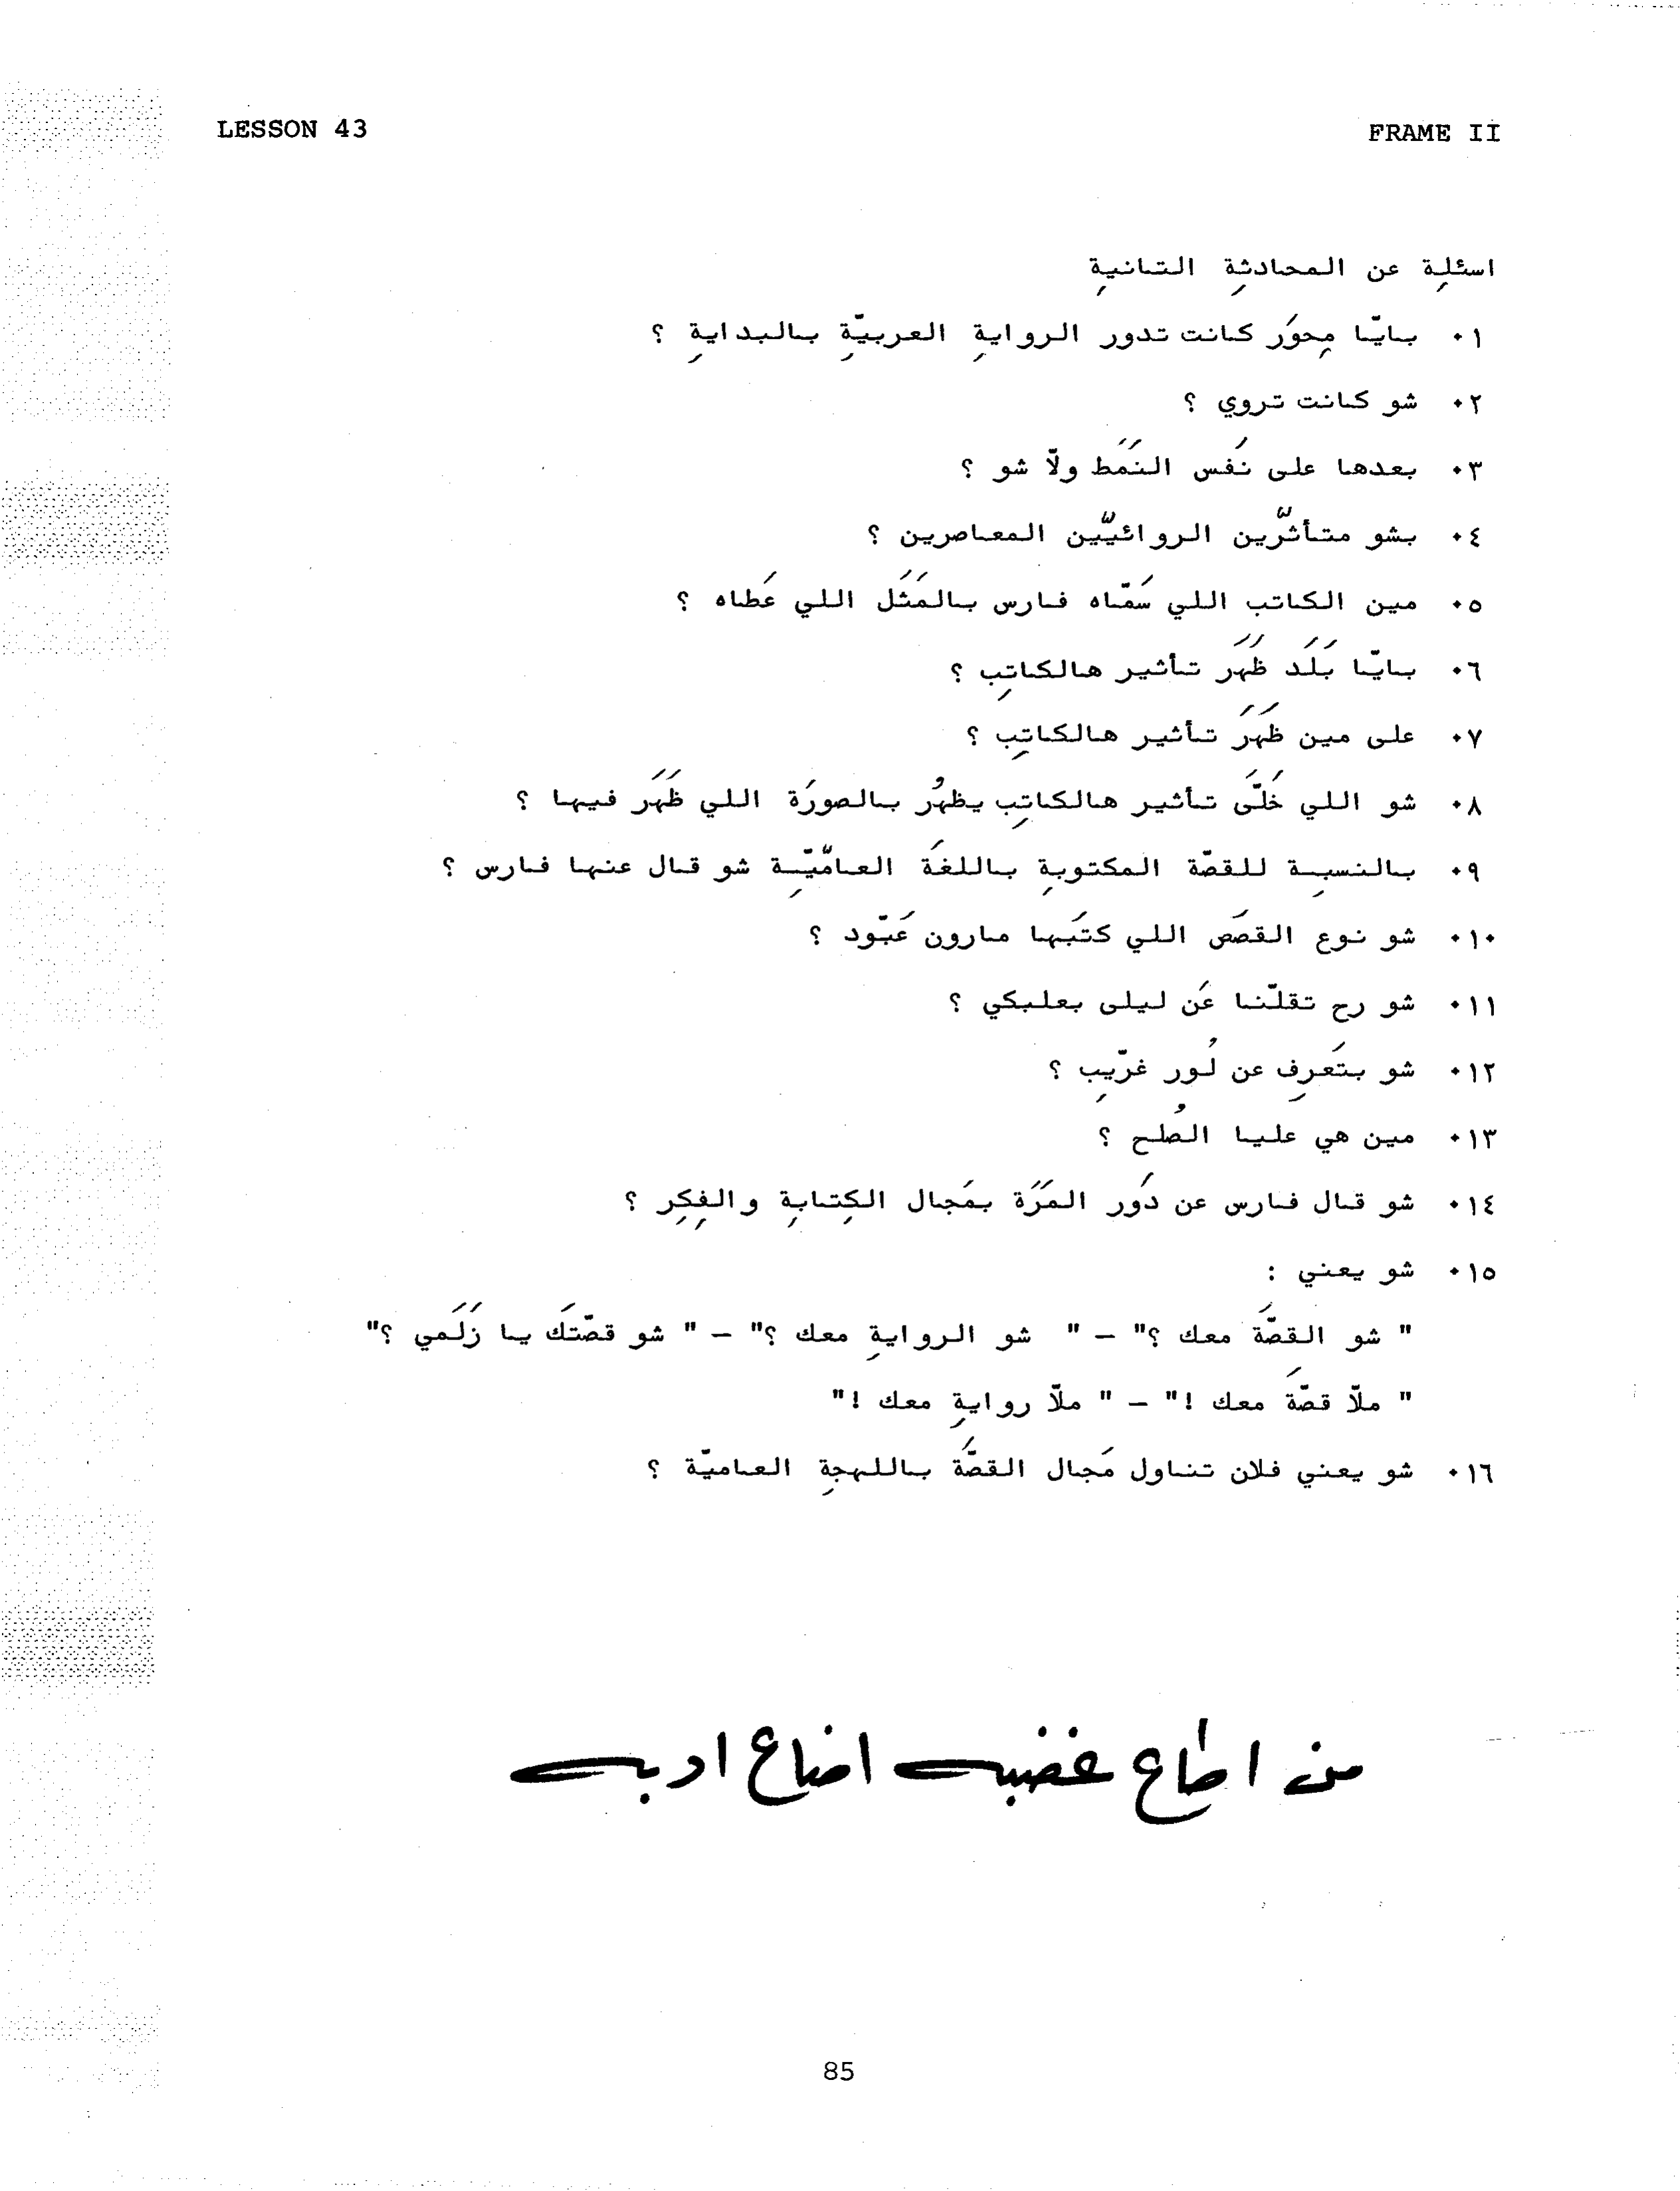 LESSON 43
FRAME II
اسئلِة عن المحادثِة التانيِة
٠١ بايّا مِحوَر كانت تدور الروايِة العربيِّة بالبدايِة ؟
٠٢ شو كانت تروي ؟
٠٣ بعدها على نَفس النَمَط ولّا شو ؟
٠٤ بشو متأثّرين الروائيّين المعاصرين ؟
٠٥ مين الكاتب اللي سَمّاه فارس بالمَثَل اللي عَطاه ؟
٠٦ بايّا بَلَد ظَهَر تأثير هالكاتِب ؟
٠٧ على مين ظَهَر تأثير هالكاتِب ؟
٠٨ شو اللي خَلَّى تأثير هالكاتِب يظهُر بالصورَة اللي ظَهَر فيها ؟
٠٩ بالنسبِة للقصّة المكتوبِة باللغَة العامّيِّة شو قال عنها فارس ؟
٠١٠ شو نوع القصَص اللي كتَبها مارون عَبّود ؟
٠١١ شو رح تقلّنا عَن ليلى بعلبكي ؟
٠١٢ شو بتَعرِف عن لُور غرّيِب ؟
٠١٣ مين هي عليا الصُلح ؟
٠١٤ شو قال فارس عن دَور المَرَة بمَجال الكِتابِة والفِكِر ؟
٠١٥ شو يعني :
" شو القصَّة معك ؟" – " شو الروايِة معك ؟" – " شو قصّتَك يا زَلَمي ؟"
" ملّا قصَّة معك !" – " ملّا روايِة معك !"
٠١٦ شو يعني فلان تناول مَجال القصَّة باللهجِة العاميّة ؟
من اطاع غضبه اضاع ادبه
85